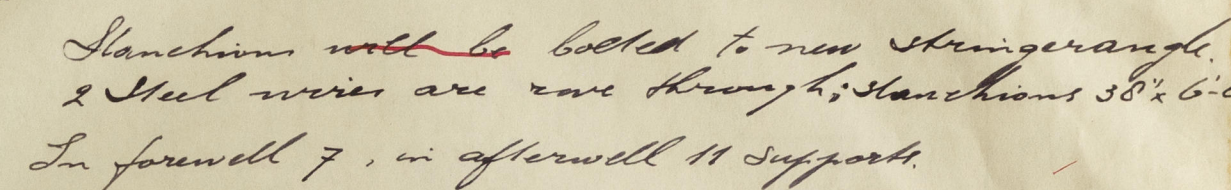 Stanchions will be bolted to new stringerangle.
2 Steel wires are rove through; stanchions 38" x 6'-
In forewell 7, in afterwell 11 supports.